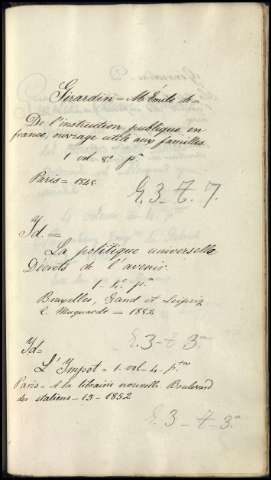 Girardin = M. Émile de =
De l'instruction publique en
france, ouvrage utile aux familles
1 vol. 8º pº
Paris = 1842
E. 3 - T. 7.
Id. =
La politique universelle
Décrets de l'avenir
1 - 4º pº
Bruxelles, Gand et Leipzig
C. Muquardt = 1852
E. 3 - T 3ª
Id =
L'Impot = 1 vol. 4. pº
Paris = A la librairie nouvelle Boulevard
des italiens - 15 - 1852
E. 3 - T - 3ª